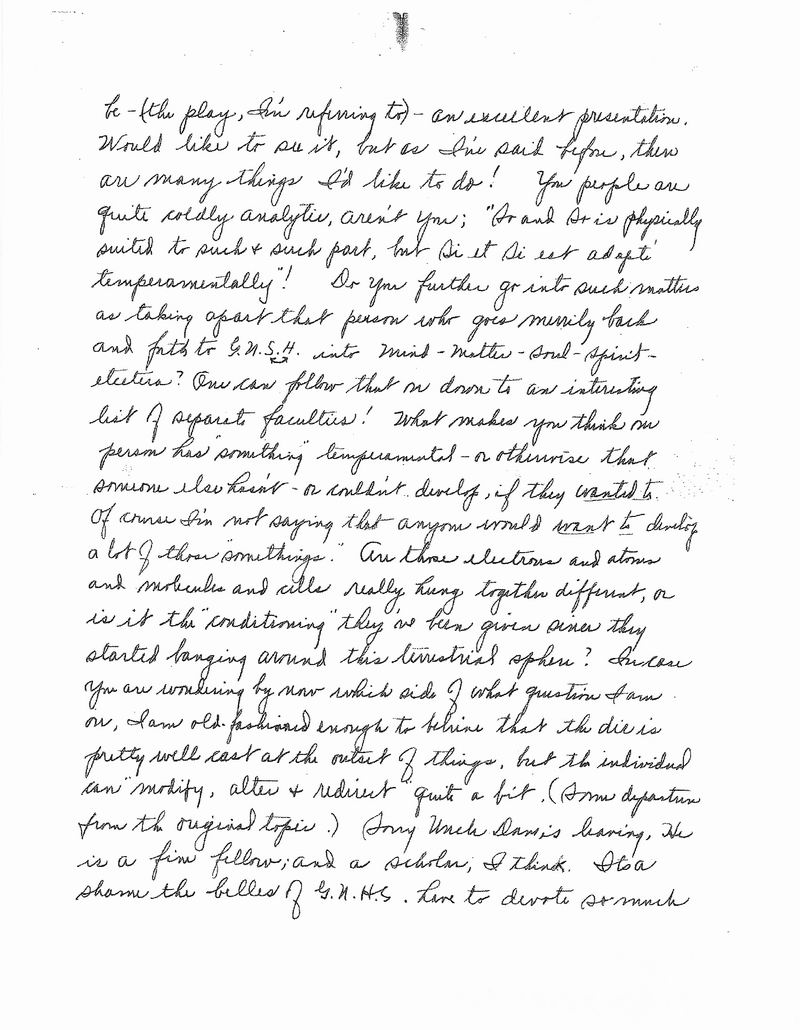 be - (the play, I'm referring to) - an excellent presentation.
Would like to see it, but as I've said before, there
are many things I'd like to do! You people are
quite coldly analytic, aren't you; "So and So is physically
suited to such & such part, but Si et Si est adapté
temperamentally"! Do you further go into such matters
as taking apart that person who goes merrily back
and forth to G.N.S.H. into Mind - Matter - Soul - Spirit -
etcetera? One can follow that on down to an interesting
list of separate faculties! What makes you think one
person has "something" temperamental - or otherwise that
someone else hasn't - or couldn't develop, if they wanted to.
Of course I'm not saying that anyone would want to develop
a lot of those "somethings." Are those electrons and atoms
and molecules and cells really hung together different, or
is it the "conditioning" they've been given since they
started banging around this terrestrial sphere? In case
you are wondering by now which side of what question I am
on, I am old-fashioned enough to believe that the die is
pretty well cast at the outset of things, but the individual
can "modify, alter & redirect" quite a bit. (Some departure
from the original topic.) Sorry Uncle Dan is leaving, He
is a fine fellow; and a scholar, I think. Its a
shame the belles of G.N.H.S. have to devote so much